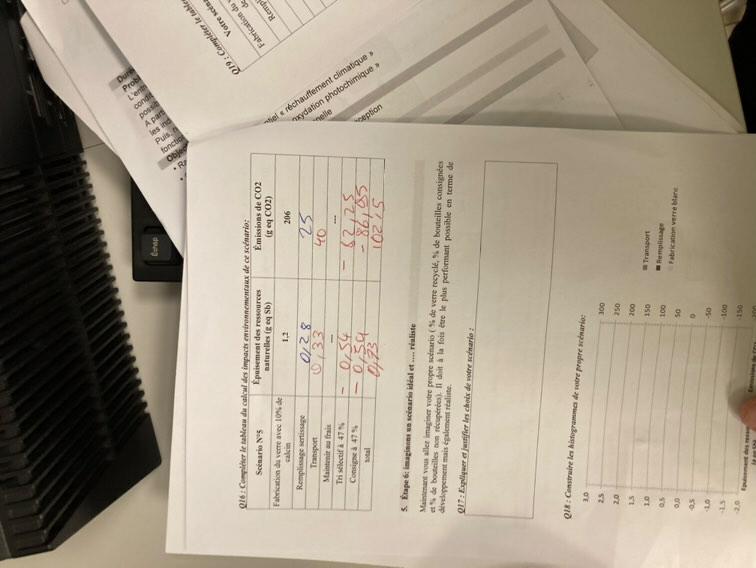 Q16 : Compléter le tableau du calcul des impacts environnementaux de ce scénario:
Scénario N°5
Épuisement des ressources naturelles (g eq Sb)
Émissions de CO2 (g eq CO2)
Fabrication du verre avec 10% de calcin
1,2
206
Remplissage sertissage
0,28
25
Transport
0,33
40
Maintenir au frais
...
...
Tri sélectif à 47 %
- 0,54
- 62,25
Consigne à 47 %
- 0,54
total
0,73
102,5
5. Étape 6: imaginons un scénario idéal et .... réaliste
Maintenant vous allez imaginer votre propre scénario ( % de verre recyclé, % de bouteilles consignées
et % de bouteilles non récupérées). Il doit à la fois être le plus performant possible en terme de
développement mais également réaliste.
Q17 : Expliquer et justifier les choix de votre scénario :
Q18 : Construire les histogrammes de votre propre scénario:
3,0
2,5
2,0
1,5
1,0
0,5
0,0
-0,5
-1,0
-1,5
-2,0
300
250
200
150
100
50
0
-50
-100
-150
Transport
Remplissage
Fabrication verre blanc
Épuisement des
Q19 : Compléter le
Votre
Fabrication du
« réchauffement climatique »
oxydation photochimique »
Échap